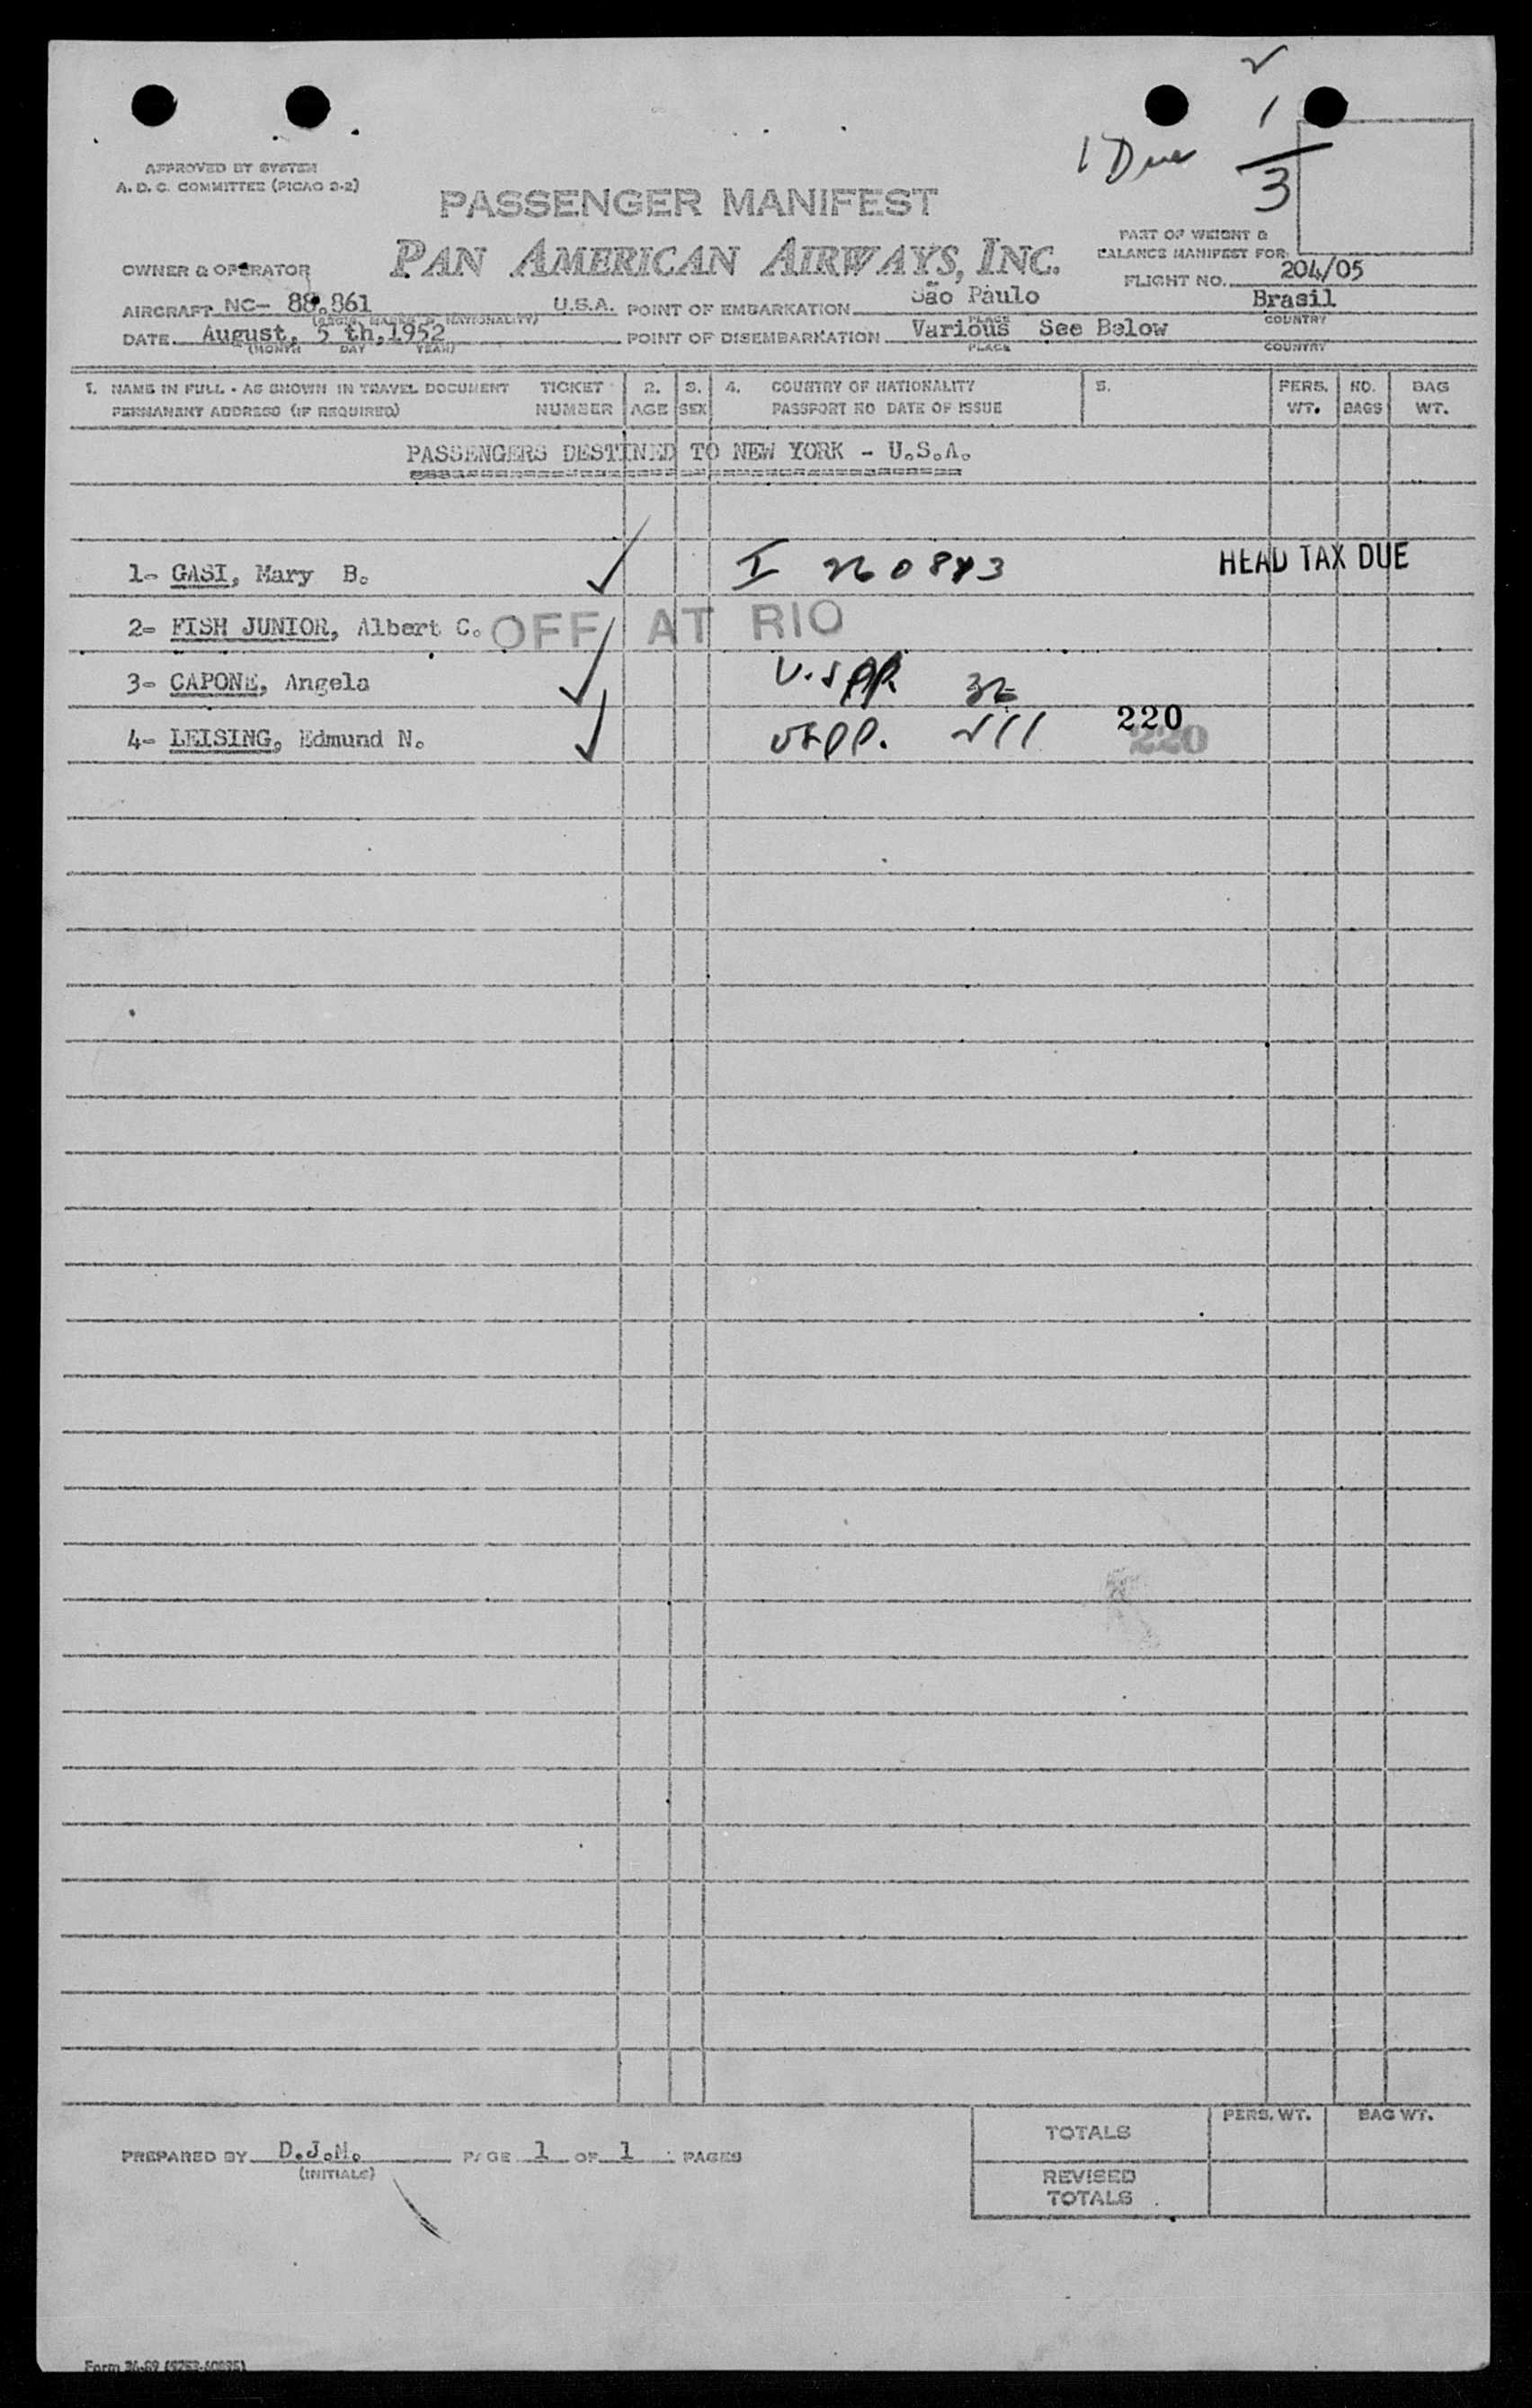 2
1
1 Due
3
APPROVED BY SYSTEM
A. D. C. COMMITTEE (PICAO 2-2)
PASSENGER MANIFEST
PAN AMERICAN AIRWAYS, INC.
PART OF WEIGHT &
BALANCE MANIFEST FOR:
FLIGHT NO. 204/05
OWNER & OPERATOR
AIRCRAFT NC- 88.861 U.S.A. POINT OF EMBARKATION São Paulo Brasil
(REGIS. MARKS & NATIONALITY) PLACE COUNTRY
DATE August, 5 th,1952 POINT OF DISEMBARKATION Various See Below
(MONTH DAY YEAR) PLACE COUNTRY
1. NAME IN FULL - AS SHOWN IN TRAVEL DOCUMENT TICKET 2. 3. 4. COUNTRY OF NATIONALITY 5. PERS. NO. BAG
PERMANENT ADDRESS (IF REQUIRED) NUMBER AGE SEX PASSPORT NO DATE OF ISSUE WT. BAGS WT.
PASSENGERS DESTINED TO NEW YORK - U.S.A.
1- GASI, Mary B. I HEAD TAX DUE
2- FISH JUNIOR, Albert C. OFF AT RIO
3- CAPONE, Angela
4- LEISING, Edmund N. 220
220
TOTALS PERS. WT. BAG WT.
PREPARED BY D.J.M. PAGE 1 OF 1 PAGES
(INITIALS)
REVISED
TOTALS